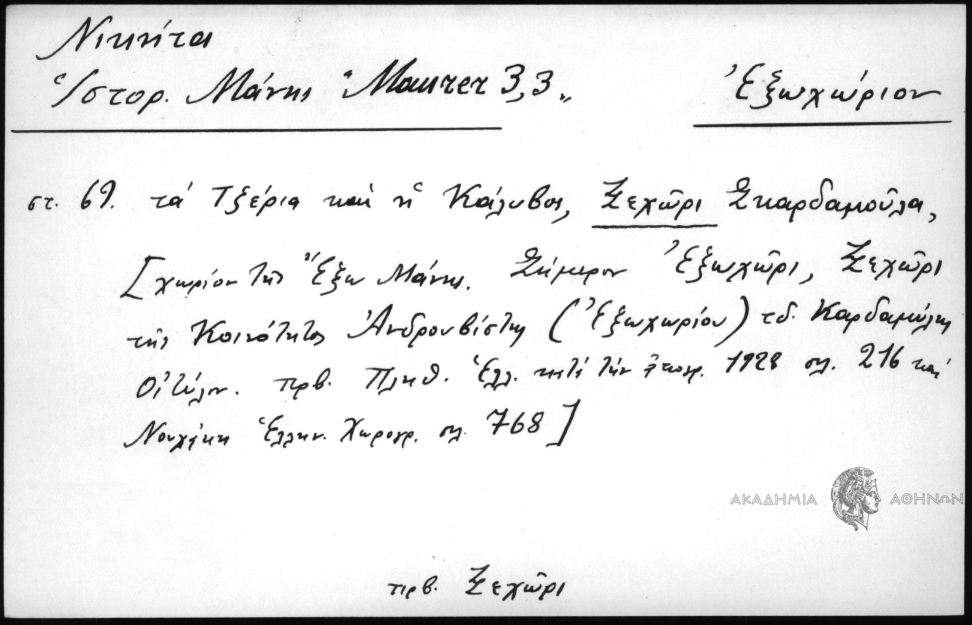 Νικήτα
Ἱστορ. Μάνης Maurer 3,3,, Ἐξωχώριον
στ. 69. τά Τζέρια καί ἡ Κάλυβες, Ξεχῶρι Σκαρδαμοῦλα,
[χωρίον τῆς Ἔξω Μάνης. Σήμερον Ἐξωχῶρι, Ξεχῶρι
τῆς Κοινότητος Ἀνδρουβίστης (Ἐξωχωρίου) τ.δ. Καρδαμύλης
Οἰτύλου. πρβ. Πληθ. Ἑλλ. κατά τήν ἀπογρ. 1928 σελ. 216 καί
Νουχάκη Ἑλλην. Χωρογρ. σελ. 768]
ΑΚΑΔΗΜΙΑ ΑΘΗΝΩΝ
πρβ. Ξεχῶρι